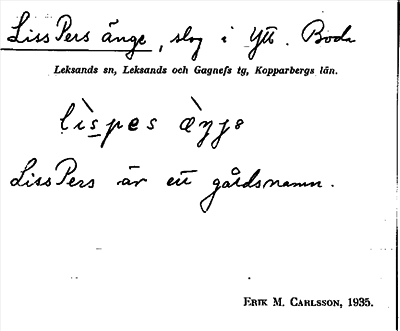 Liss Pers änge, slog i Ytt. Boda
Leksands sn, Leksands och Gagnefs tg, Kopparbergs län.
Liss Pers är ett gårdsnamn.
ERIK M. CARLSSON, 1935.